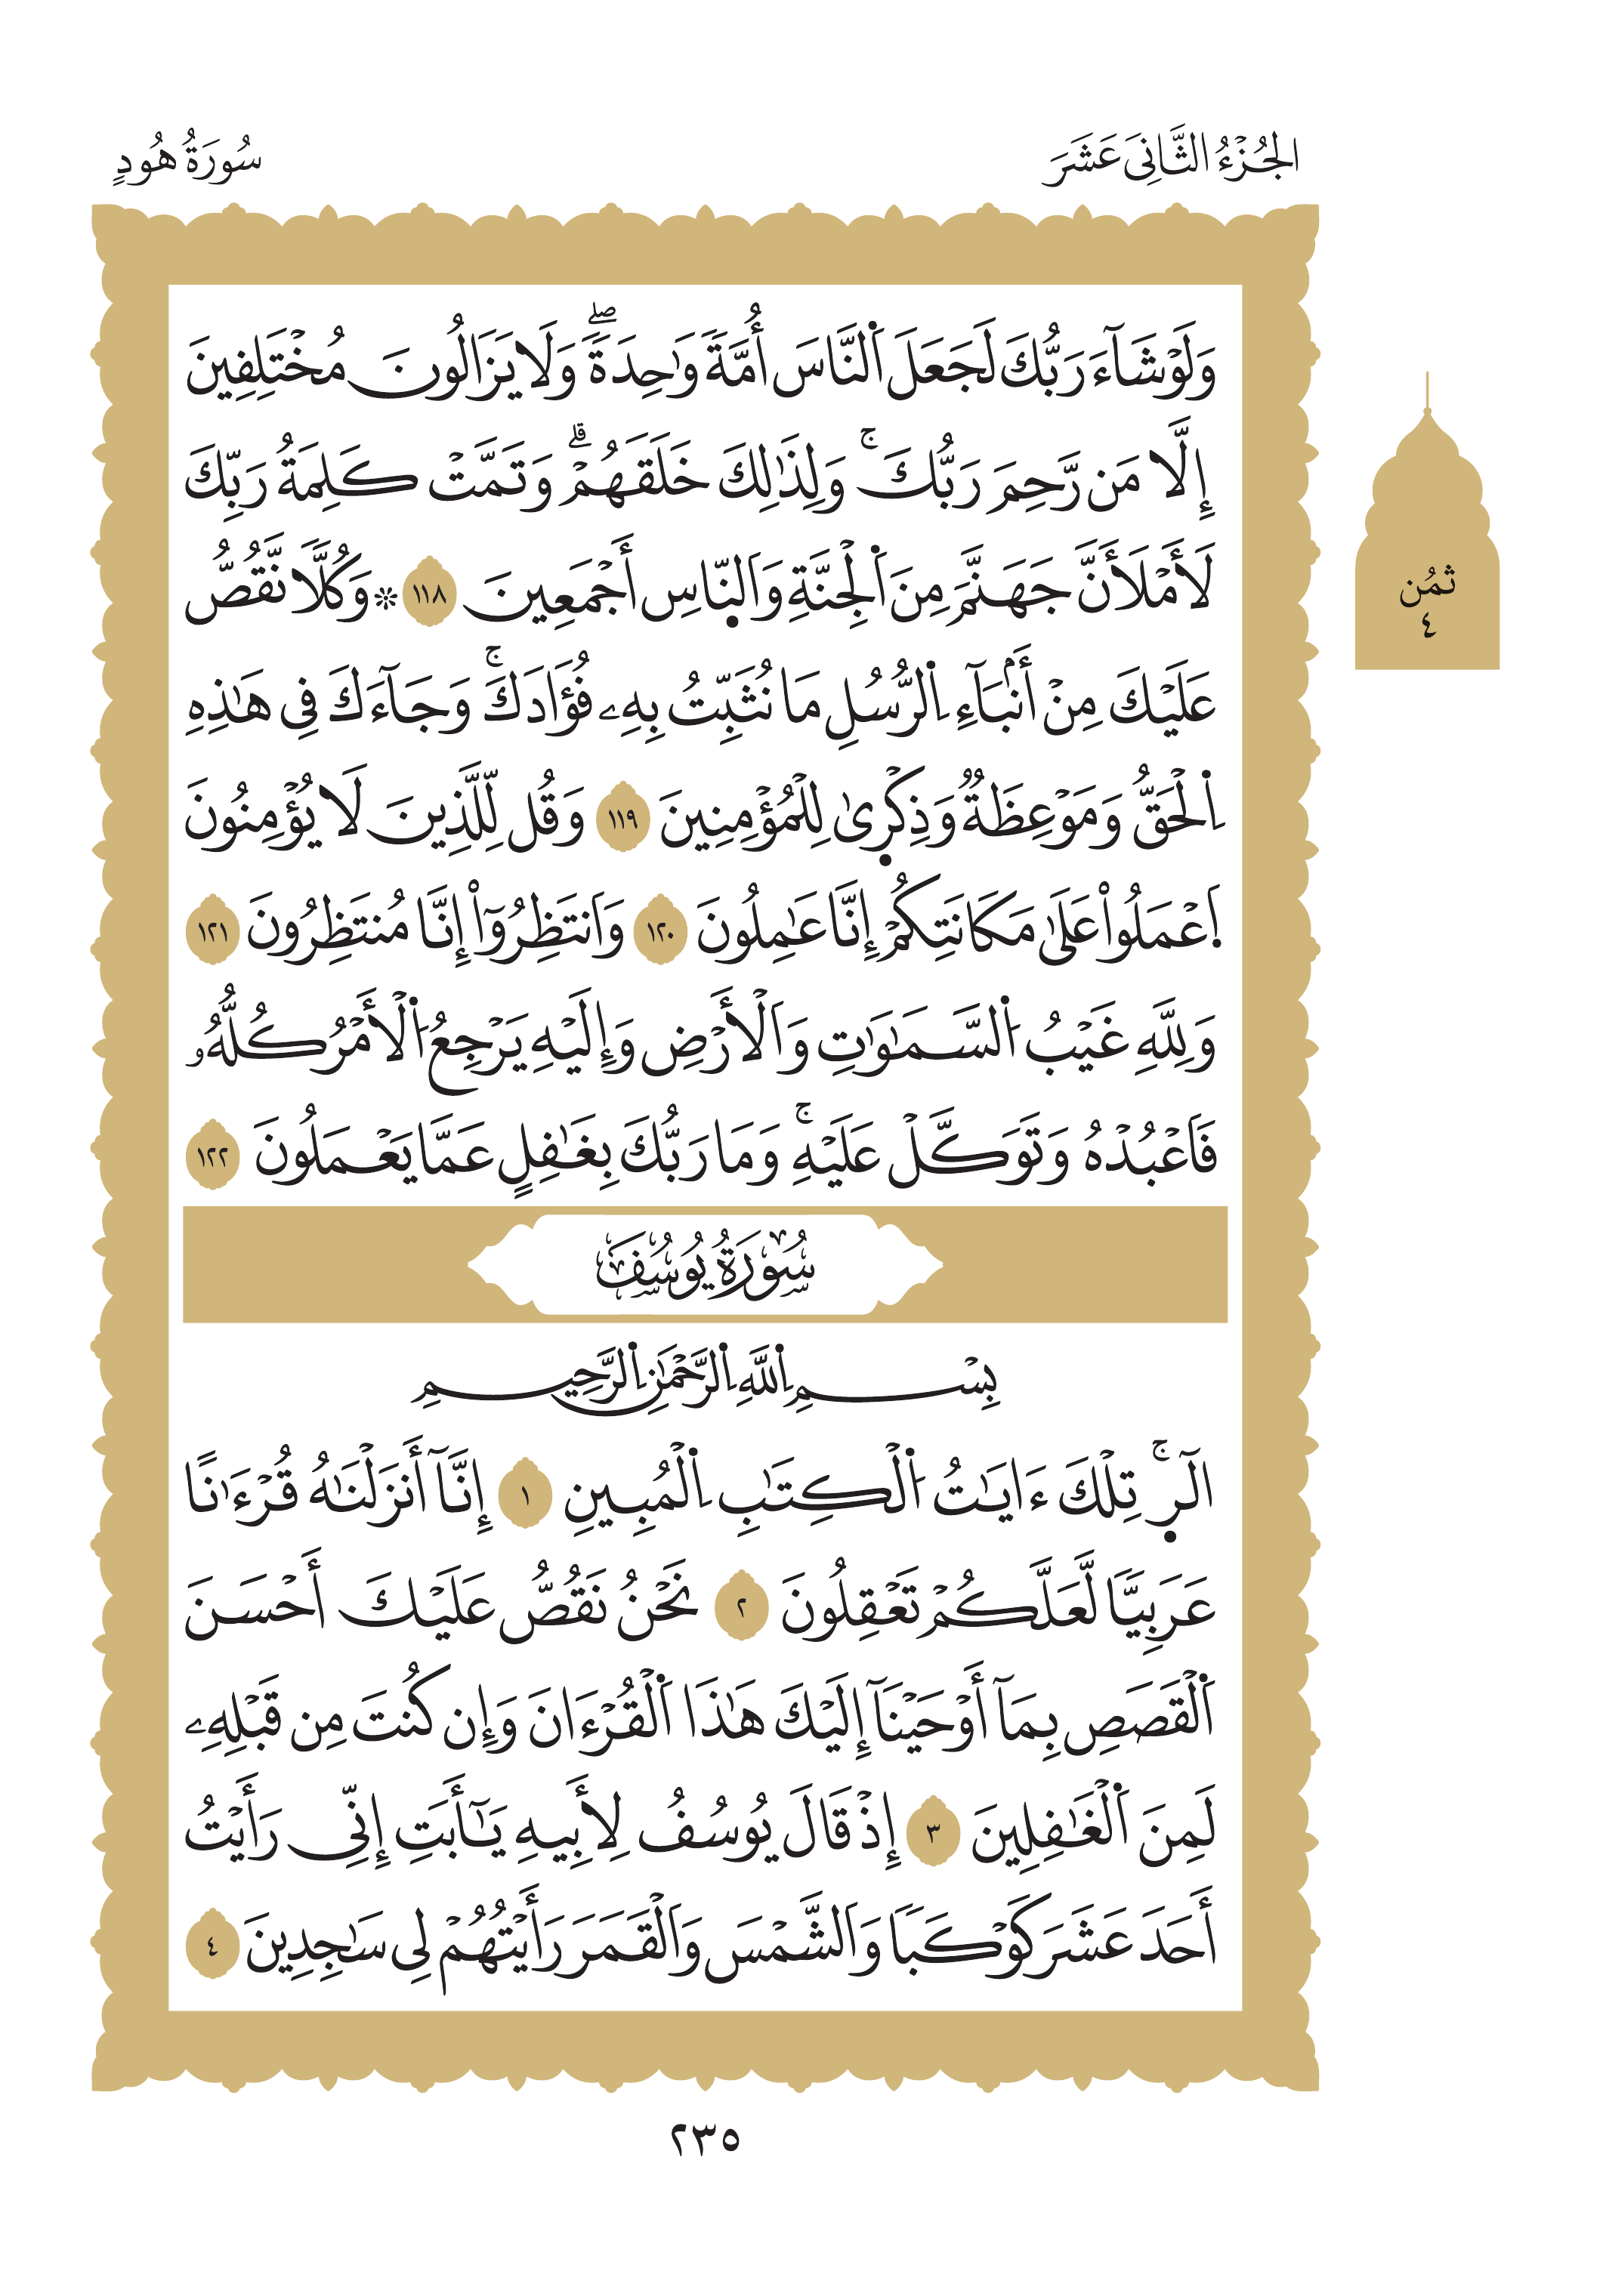 الجُزْءُ الثَّانِىَ عَشَرَ
سُورَةُ هُودٍ
وَلَوْ شَآءَ رَبُّكَ لَجَعَلَ اَ۬لنَّاسَ أُمَّةٗ وَٰحِدَةٗۖ وَلَا يَزَالُونَ مُخْتَلِفِينَ
إِلَّا مَن رَّحِمَ رَبُّكَۚ وَلِذَٰلِكَ خَلَقَهُمْۗ وَتَمَّتْ كَلِمَةُ رَبِّكَ
لَأَمْلَأَنَّ جَهَنَّمَ مِنَ اَ۬لْجِنَّةِ وَالنّ۪اسِ أَجْمَعِينَ ١١٨ * وَكُلّٗا نَّقُصُّ
عَلَيْكَ مِنْ أَنۢبَآءِ اِ۬لرُّسُلِ مَا نُثَبِّتُ بِهِۦ فُؤَادَكَۚ وَجَآءَكَ فِى هَٰذِهِ
اِ۬لْحَقُّ وَمَوْعِظَةٞ وَذِكْر۪ىٰ لِلْمُؤْمِنِينَ ١١٩ وَقُل لِّلَّذِينَ لَا يُؤْمِنُونَ
اُ۪عْمَلُواْ عَلَىٰ مَكَانَتِكُمْ إِنَّا عَٰمِلُونَ ١٢٠ وَانتَظِرُوٓاْ إِنَّا مُنتَظِرُونَ ١٢١
وَلِلَّهِ غَيْبُ اُ۬لسَّمَٰوَٰتِ وَالْأَرْضِ وَإِلَيْهِ يَرْجِعُ اُ۬لْأَمْرُ كُلُّهُۥ
فَاعْبُدْهُ وَتَوَكَّلْ عَلَيْهِۚ وَمَا رَبُّكَ بِغَٰفِلٍ عَمَّا يَعْمَلُونَ ١٢٢
سُورَةُ يُوسُفَ
بِسْمِ اِ۬للَّهِ اِ۬لرَّحْمَٰنِ اِ۬لرَّحِيمِ
الٓر۪ۚ تِلْكَ ءَايَٰتُ اُ۬لْكِتَٰبِ اِ۬لْمُبِينِ ١ إِنَّآ أَنزَلْنَٰهُ قُرْءَٰنًا
عَرَبِيّٗا لَّعَلَّكُمْ تَعْقِلُونَ ٢ نَحْنُ نَقُصُّ عَلَيْكَ أَحْسَنَ
اَ۬لْقَصَصِ بِمَآ أَوْحَيْنَآ إِلَيْكَ هَٰذَا اَ۬لْقُرْءَانَ وَإِن كُنتَ مِن قَبْلِهِۦ
لَمِنَ اَ۬لْغَٰفِلِينَ ٣ إِذْ قَالَ يُوسُفُ لِأَبِيهِ يَٰٓأَبَتِ إِنِّى رَأَيْتُ
أَحَدَ عَشَرَ كَوْكَبٗا وَالشَّمْسَ وَالْقَمَرَ رَأَيْتُهُمْ لِى سَٰجِدِينَ ٤
ثمُن
٤
٢٣٥